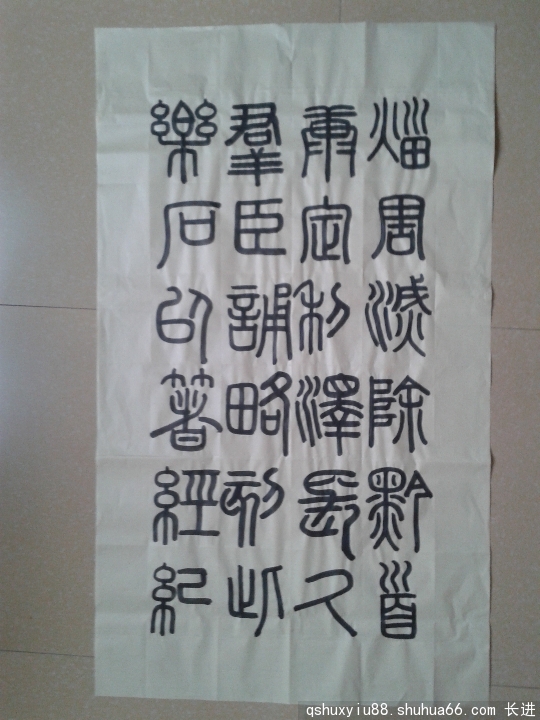 㷉周滅除黔首
康定利澤長久
羣臣誦略刻此
樂石以著經紀
qshuxyiu88.shuhua66.com 长进